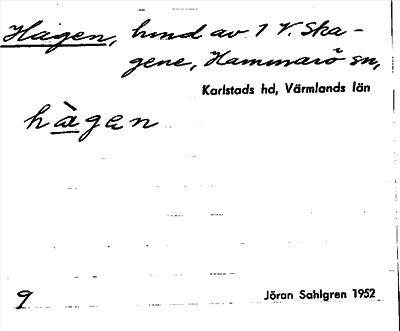 Hagen, hmd av 1 V. Ska-
gene, Hammarö sn,
Karlstads hd, Värmlands län
hàgen
9
Jöran Sahlgren 1952